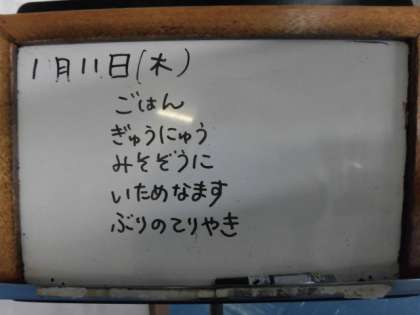 1月11日(木)
ごはん
ぎゅうにゅう
みそぞうに
いためなます
ぶりのてりやき